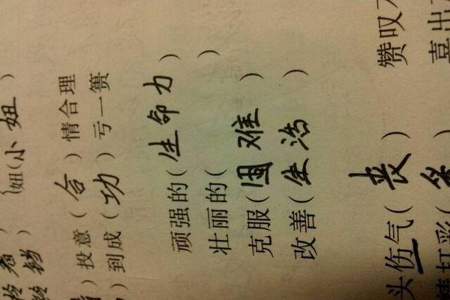 妞(小妞)
)投意(合)情合理
)到成(功)亏一篑
顽强的(生命力)
壮丽的(
克服(困难)
改善(生活)
头伤气(丧) 赞叹
打彩( 喜出